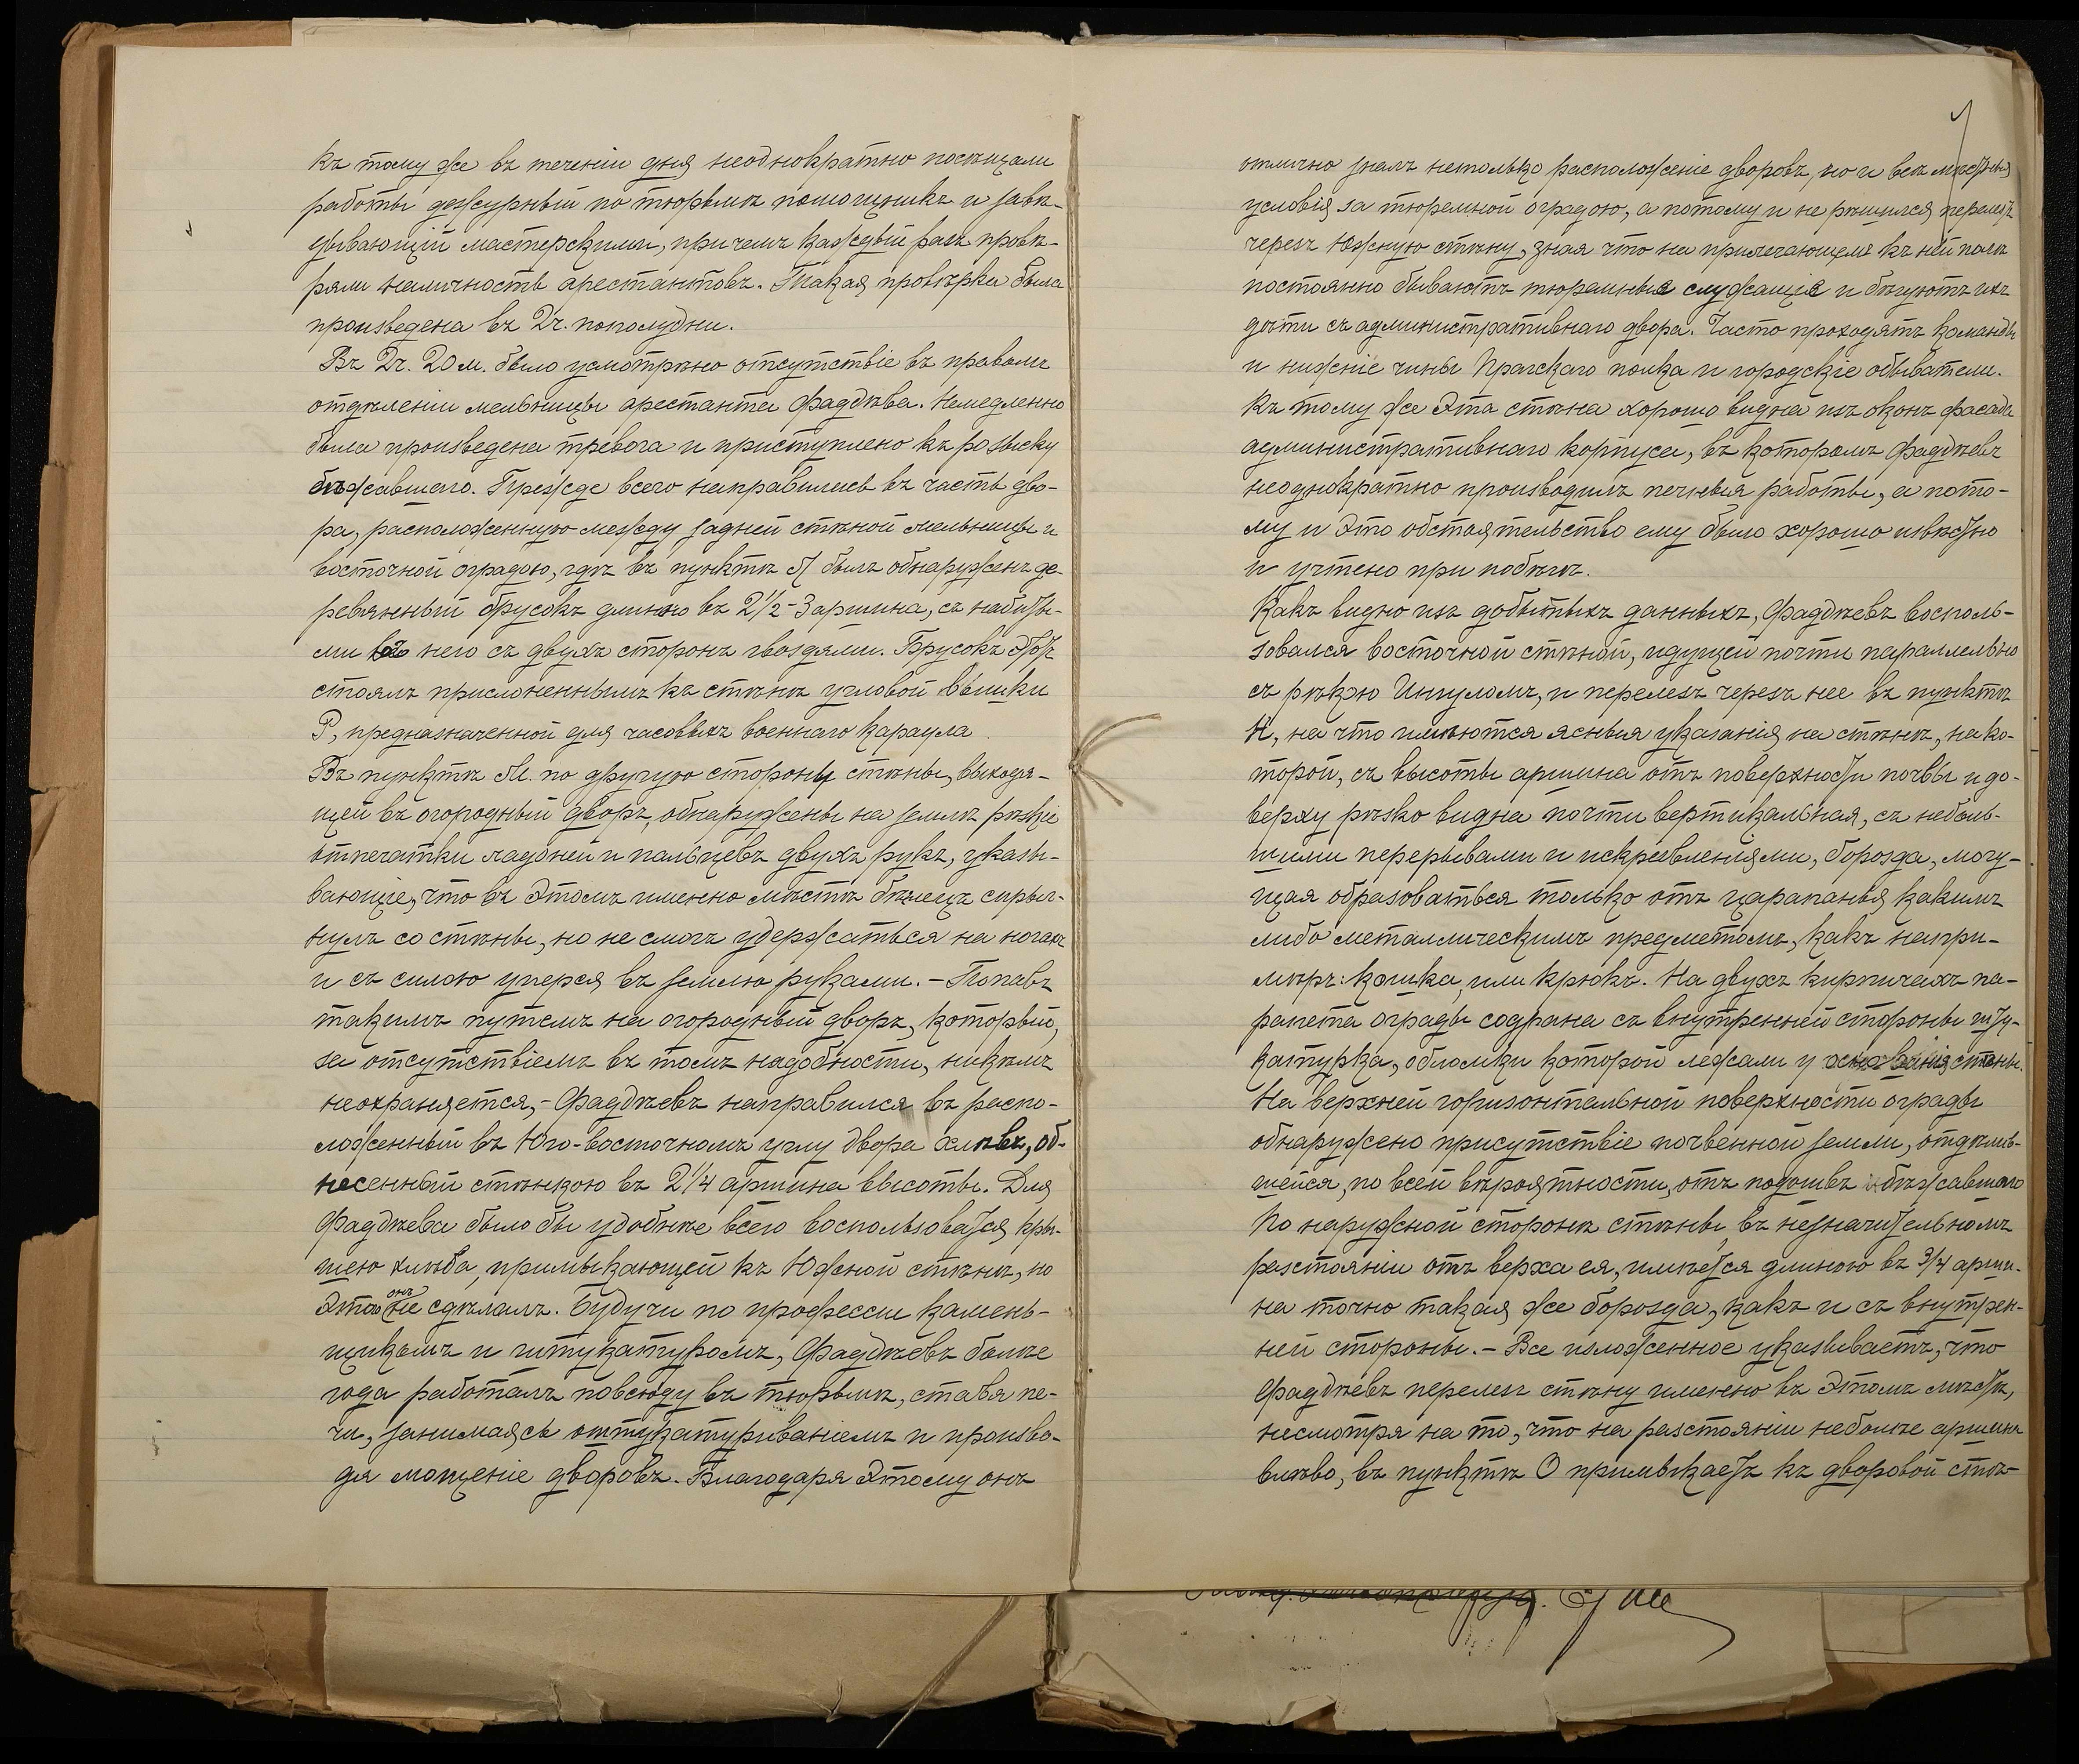 къ тому же въ теченіи дня неоднократно посѣщали
работы дежурный по тюрьмѣ помощникъ и завѣ-
дывающій мастерскими, причемъ каждый разъ провѣ-
ряли наличность арестантовъ. Такая провѣрка была
произведена въ 2ч. пополудни.
Въ 2ч. 20м. было усмотрѣно отсутствіе въ правомъ
отдѣленіи мельницы арестанта Фаддѣева. Немедленно
была произведена тревога и приступлено къ розыску
бѣжавшаго. Прежде всего направились въ часть дво-
ра, расположенную между задней стѣной мельницы и
восточной оградою, гдѣ въ пунктѣ Л былъ обнаруженъ де-
ревянный брусокъ длиною въ 2 1/2-3 аршина, съ набиты-
ми въ него съ двухъ сторонъ гвоздями. Брусокъ этотъ
стоялъ прислоненнымъ къ стѣнѣ угловой вышки
Р, предназначенной для часовыхъ военнаго караула.
Въ пунктѣ М. по другую сторону стѣны, выходя-
щей въ огородный дворъ, обнаружены на землѣ рѣзкіе
отпечатки ладоней и пальцевъ двухъ рукъ, указы-
вающіе, что въ этомъ именно мѣстѣ бѣглецъ спрыг-
нулъ со стѣны, но не смогъ удержаться на ногахъ
и съ силою уперся въ землю руками. - Попавъ
такимъ путемъ на огородный дворъ, который,
за отсутствіемъ въ томъ надобности, никѣмъ
неохраняется, - Фаддѣевъ направился въ распо-
ложенный въ Юго-восточномъ углу двора хлѣвъ, об-
несенный стѣнкою въ 2 1/4 аршина высоты. Для
Фаддѣева было бы удобнѣе всего воспользоваться кры-
шею хлѣва, примыкающей къ Южной стѣнѣ, но
этого онъ не сдѣлалъ. Будучи по профессіи камень-
щикомъ и штукатуромъ, Фаддѣевъ болѣе
года работалъ повсюду въ тюрьмѣ, ставя пе-
чи, занимаясь оштукатуриваніемъ и произво-
дя мощеніе дворовъ. Благодаря этому онъ
отлично зналъ нетолько расположеніе дворовъ, но и всѣ мѣстныя
условія за тюремной оградою, а потому и не рѣшился перелѣзть
черезъ Южную стѣну, зная что на прилегающемъ къ ней полѣ
постоянно бываютъ тюремные служащіе и бѣгаютъ ихъ
дѣти съ административнаго двора. Часто проходятъ команды
и нижніе чины Прагскаго полка и городскіе обыватели.
Къ тому же эта стѣна хорошо видна изъ оконъ фасада
административнаго корпуса, въ которомъ Фаддѣевъ
неоднократно производилъ печныя работы, а пото-
му и это обстоятельство ему было хорошо извѣстно
и учтено при побѣгѣ.
Какъ видно изъ добытыхъ данныхъ, Фаддѣевъ восполь-
зовался восточной стѣной, идущей почти параллельно
съ рѣкою Ингуломъ, и перелезъ черезъ нее въ пунктѣ
Н, на что имѣются ясныя указанія на стѣнѣ, на ко-
торой, съ высоты аршина отъ поверхности почвы и до-
верху рѣзко видна почти вертикальная, съ неболь-
шими перерывами и искревленіями, борозда, могу-
щая образоваться только отъ царапанья какимъ
либо металлическимъ предметомъ, какъ напри-
мѣръ: кошка, или крюкъ. На двухъ кирпичахъ па-
рапета ограды содрана съ внутренней стороны шту-
катурка, обломки которой лежали у основанія стѣны.
На верхней горизонтальной поверхности ограды
обнаружено присутствіе почвенной земли, отдѣлив-
шейся, по всей вѣроятности, отъ подошвъ бѣжавшаго
По наружной сторонѣ стѣны, въ незначительномъ
разстояніи отъ верха ея, имѣется длиною въ 3/4 арши-
на точно такая же борозда, какъ и съ внутрен-
ней стороны. - Все изложенное указываетъ, что
Фаддѣевъ перелезъ стѣну именно въ этомъ мѣстѣ,
несмотря на то, что на разстояніи неболѣе аршина
влѣво, въ пунктѣ О примыкаетъ къ дворовой стѣ-